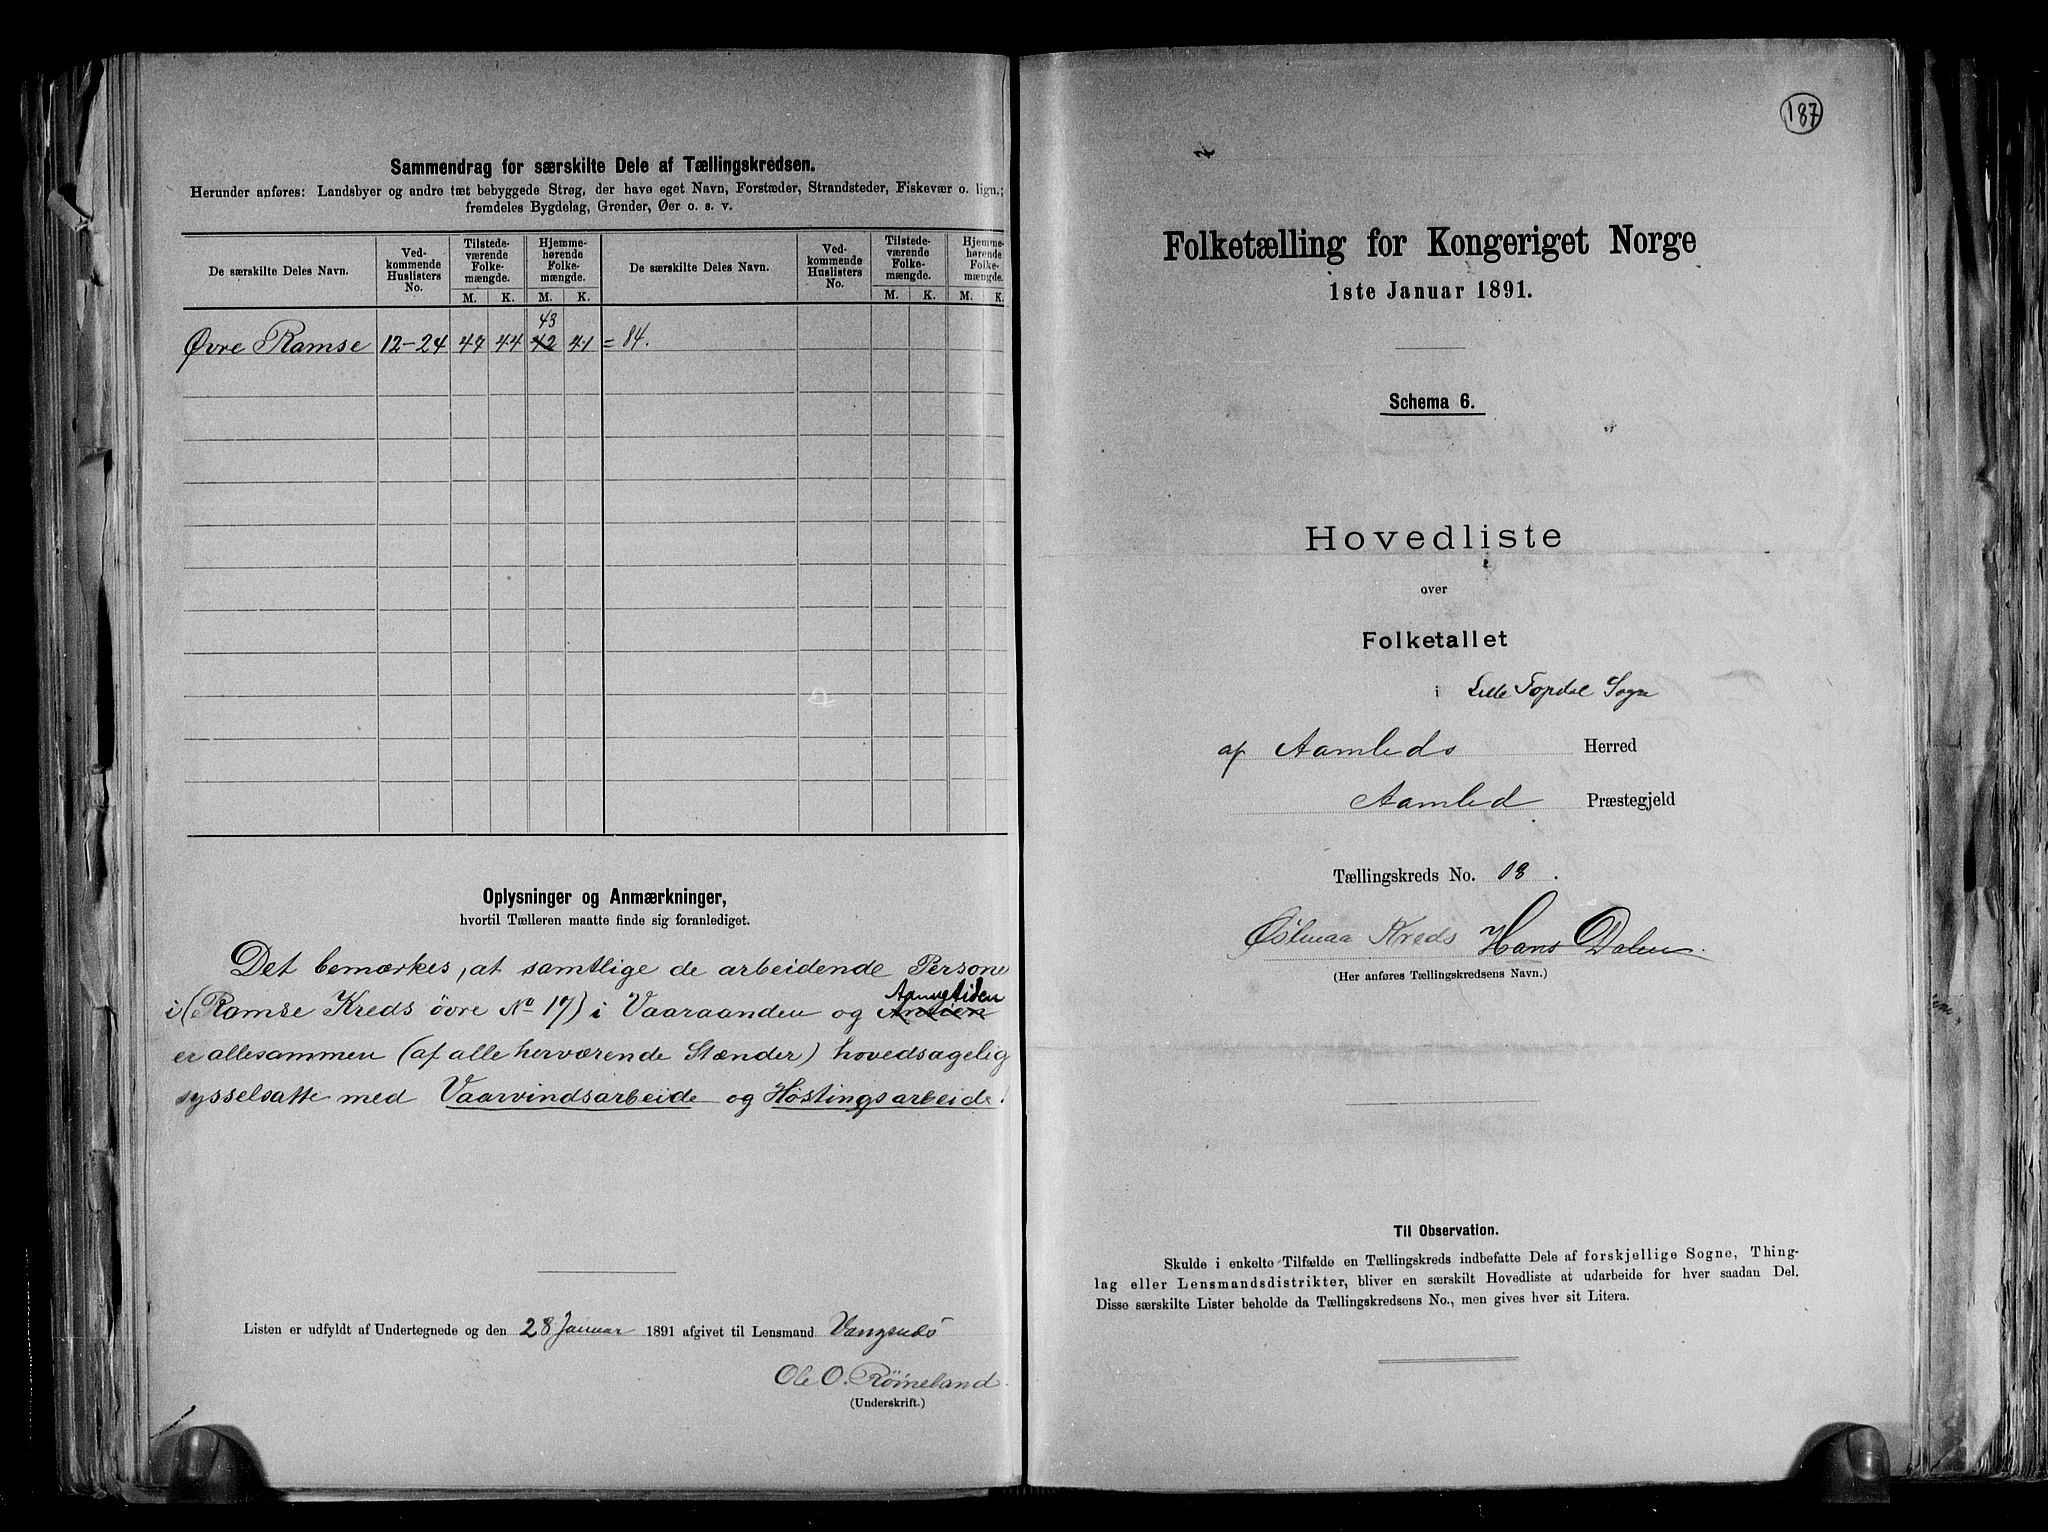 Sammendrag for særskilte Dele af Tællingskredsen.
Herunder anføres: Landsbyer og andre tæt bebyggede Strøg, der have eget Navn, Forstæder, Strandsteder, Fiskevær o. lign.;
fremdeles Bygdelag, Grender, Øer o. s. v.
De særskilte Deles Navn. Ved-kommende Huslisters No. Tilstede-værende Folke-mængde. Hjemme-hørende Folke-mængde. De særskilte Deles Navn. Ved-kommende Huslisters No. Tilstede-værende Folke-mængde. Hjemme-hørende Folke-mængde.
M. K. M. K. M. K. M. K.
43
Øvre Ramse 12-24 47 44 42 41 = 84.
Oplysninger og Anmærkninger,
hvortil Tælleren maatte finde sig foranlediget.
Det bemærkes, at samtlige de arbeidende Persone
i (Ramse Kreds övre No 17) i Vaaraanden og
er allesammen (af alle herværende Stænder) hovedsagelig
sysselsatte med Vaarvindsarbeide og Høstingsarbeide.
Listen er udfyldt af Undertegnede og den 28 Januar 1891 afgivet til Lensmand
Ole O.
(Underskrift.)
187
Folketælling for Kongeriget Norge
1ste Januar 1891.
Schema 6.
Hovedliste
over
Folketallet
i Lille Topdal Sogn
af Aamlids Herred
Aamlid Præstegjeld
Tællingskreds No. 18.
Kreds Hans Dalen
(Her anføres Tællingskredsens Navn.)
Til Observation.
Skulde i enkelte Tilfælde en Tællingskreds indbefatte Dele af forskjellige Sogne, Thing-
lag eller Lensmandsdistrikter, bliver en særskilt Hovedliste at udarbeide for hver saadan Del.
Disse særskilte Lister beholde da Tællingskredsens No., men gives hver sit Litera.